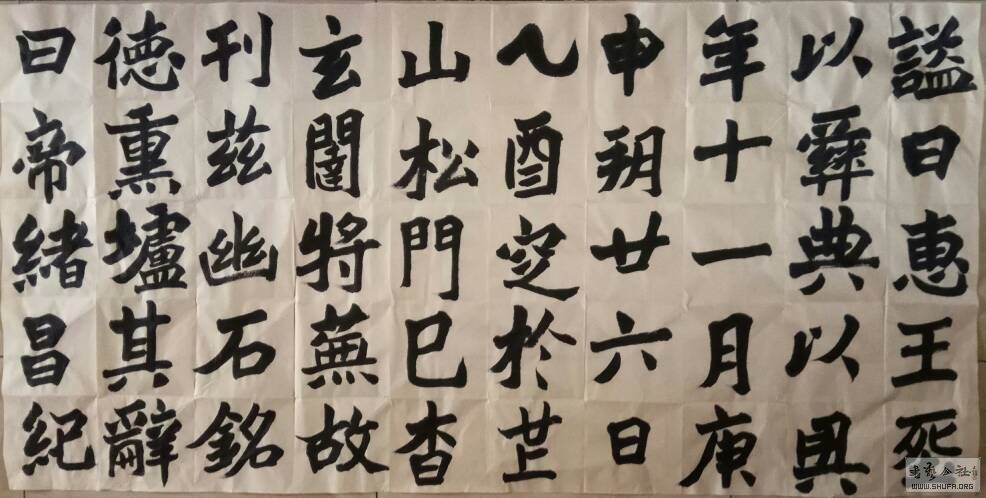 謚曰惠王死
以彝典以其
年十一月庚
申朔廿六日
乙酉窆於芒
山松門已杳
玄闥將蕪故
刊茲幽石銘
德熏壚其辭
曰帝緒昌紀
書藝公社
WWW.SHUFA.ORG